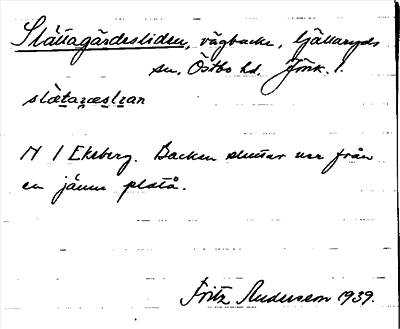 Slättagärdesliden, vägbacke, Gällaryds
sn. Östbo hd. Jönk. l.
N / Ekeberg. Backen sluttar ner från
en jämn platå.
Fritz Andersson 1939.